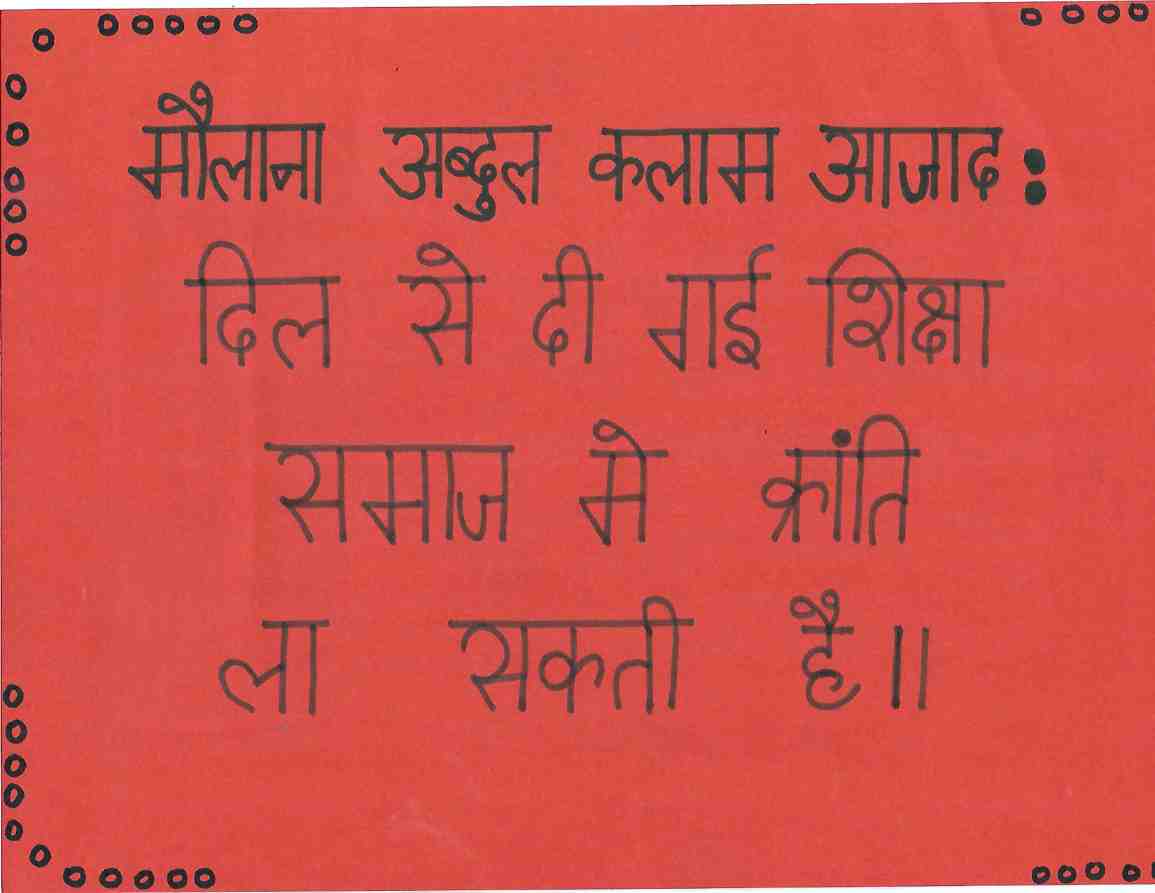 मौलाना अब्दुल कलाम आजाद:
दिल से दी गई शिक्षा
समाज मे क्रांति
ला सकती है॥